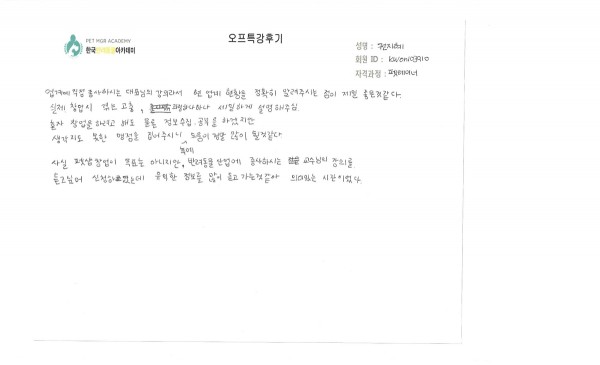 PET MGR ACADEMY
한국반려동물아카데미
오프특강후기
성명 : 권지혜
회원 ID : kwon103910
자격과정 : 펫테이너
업계에 직접 종사하시는 대표님의 강의라서 현 업계 현황을 정확히 알려주시는 점이 제일 좋은것같다.
실제 창업시 겪은 고충, 하나하나 세밀하게 설명해주심.
혼자 창업을 하려고 해도 물론 정보수집, 공부를 하겠지만
생각지도 못한 맹점을 집어주시니 도움이 정말 많이 될것같다
덕에
사실 펫샵창업이 목표는 아니지만, 반려동물 산업에 종사하시는 교수님의 강의를
듣고싶어 신청하였는데 유익한 정보를 많이 듣고가는것같아 의미있는 시간이었다.